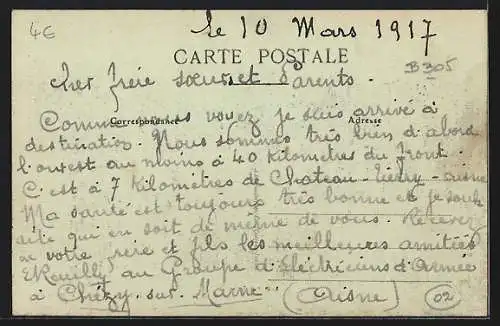 4€
le 10 Mars 1917
CARTE POSTALE
B 305
Cher frère sœur et Parents.
Correspondance
Adresse
Comme vous voyez je suis arrivé à
destination. Nous sommes très bien d'abord
l'on est au moins à 40 kilomètres du front.
C'est à 7 kilomètres de Chateau-Tierry-aisne
Ma santé est toujours très bonne et je souh
aite qui en soit de même de vous. Recevez
de votre frère et fils les meilleures amitiés
E Rouilly au Groupe d'Electriciens d'Armée
à Chézy-sur-Marne (Aisne)
02